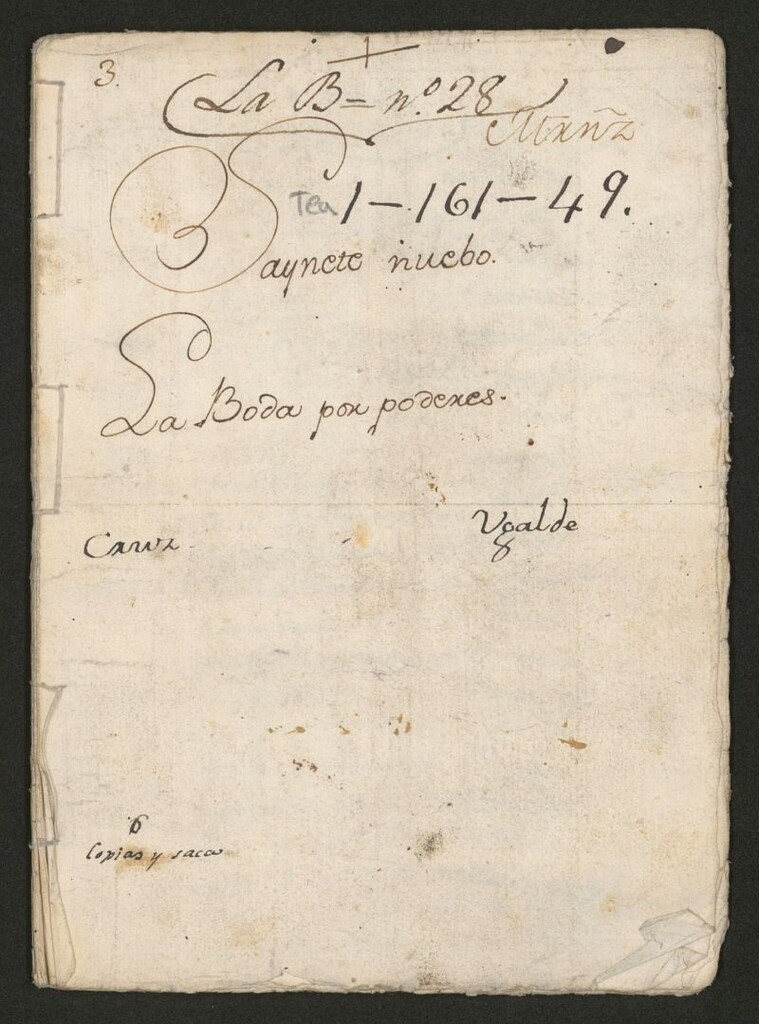 3.
La B= nº 28
Mrñz
Tea 1-161-49.
Saynete nuebo.
La Boda por poderes.
Cruz
Ugalde
6
Copias y saca